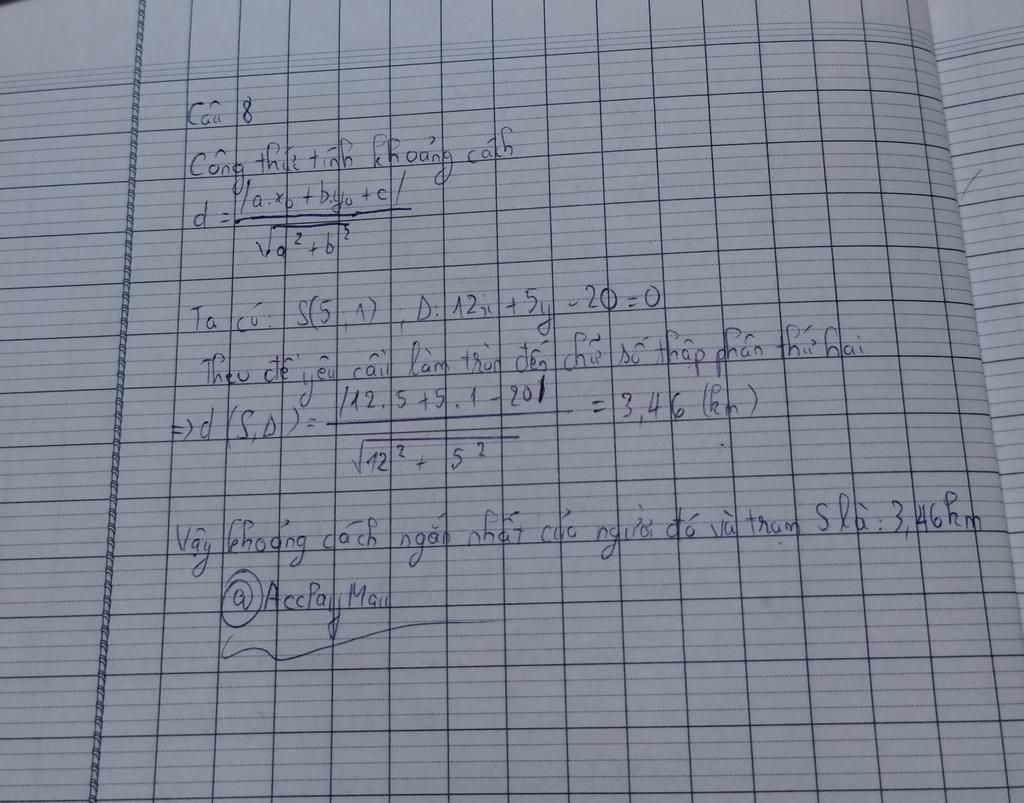 Câu 8
Công thức tính khoảng cách
d = |a.x₀ + b.y₀ + c| / √a² + b²
Ta có: S(5,1), D: 12x + 5y - 20 = 0
Theo đề yêu cầu làm tròn đến chữ số thập phân thứ hai
=> d(S,D) = |12.5 + 5.1 - 20| / √12² + 5² = 3,46 (km)
Vậy khoảng cách ngắn nhất của người đó và trạm S là: 3,46km
@AccPayMau